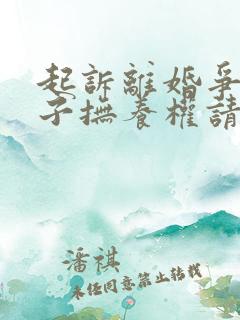 起訴離婚爭
子撫養權請
潘祺
未任同意禁止转载